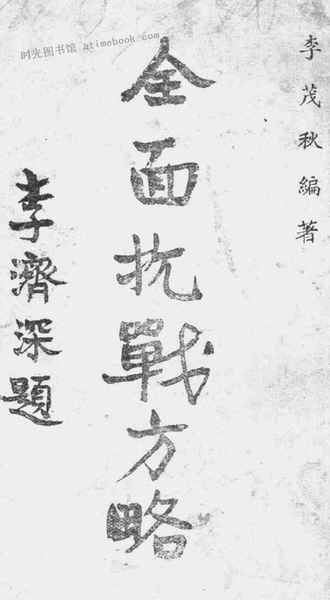 李茂秋編著
全面抗戰方略
李濟深題
时光图书馆 atimebook.com